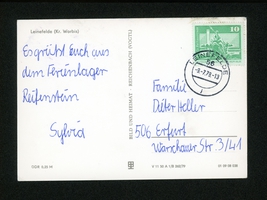 Leinefelde (Kr. Worbis)
Es grüßt Euch aus
dem Ferienlager
Reifenstein
Sylvia
BILD UND HEIMAT REICHENBACH (VOGTL)
10
LEINEFELDE
56
Familie
Dieter Heller
506 Erfurt
Warschauer Str. 3/41